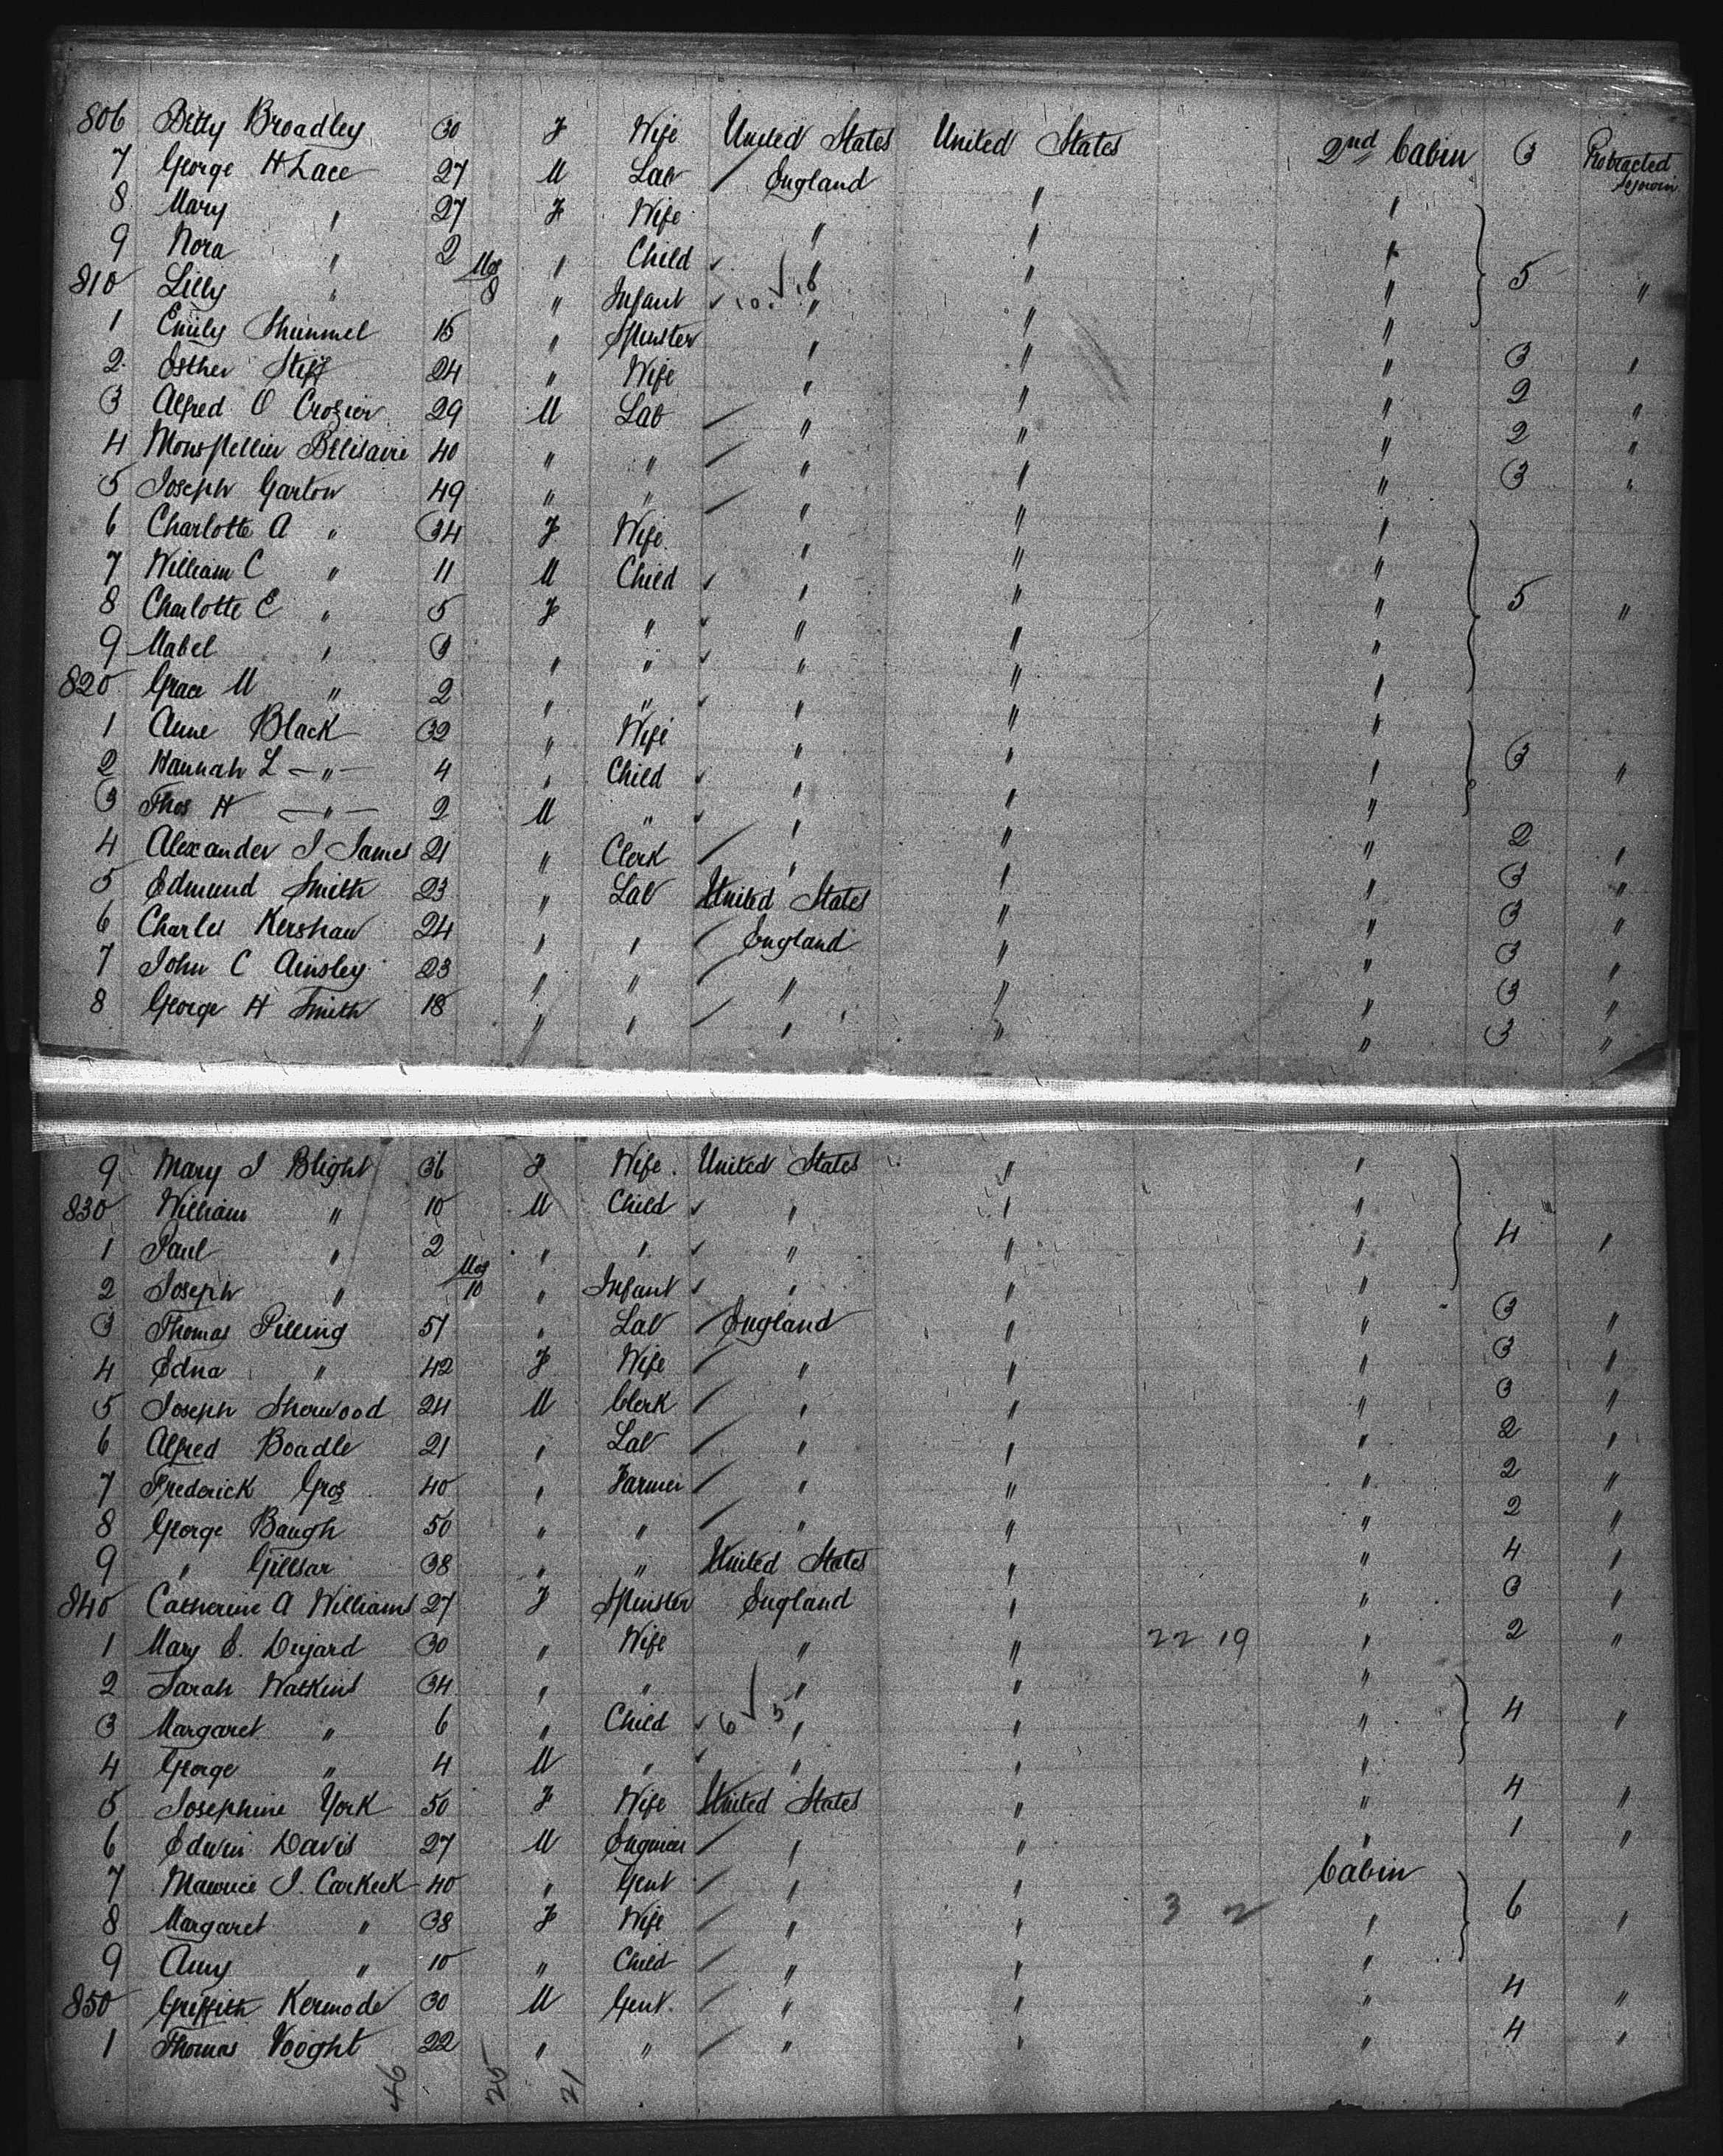 806 Betty Broadley 30 F Wife United States United States 2nd Cabin 3 Protracted Sojourn
7 George H Lace 27 M Lab / England " " 
8 Mary " 27 F Wife " " "
9 Nora " 2 " Child ✓ " " " 5 "
810 Lilly " Mos 8 " Infant ✓ 10 ✓ 18 " " "
1 Emily 15 " Spinster " " " 3 "
2 Esther Stiff 24 " Wife " " " 2 "
3 Alfred O Crozier 29 M Lab / " " " 2 "
4 Monspellier Belisaire 40 " " / " " " 3 "
5 Joseph Garton 49 " " / " " "
6 Charlotte A " 34 F Wife " " "
7 William C " 11 M Child ✓ " " " 5 "
8 Charlotte E " 5 F " ✓ " " "
9 Mabel " 3 " " ✓ " " "
820 Grace M " 2 " " ✓ " " "
1 Anne Black 32 " Wife " " " 3 "
2 Hannah L —"— 4 " Child ✓ " " "
3 Thos H —"— 2 M " ✓ " " "
4 Alexander J James 21 " Clerk / " " " 2 "
5 Edmund Smith 23 " Lab United States " " 3 "
6 Charles Kershaw 24 " " / England " " 3 "
7 John C Ainsley 23 " " / " " " 3 "
8 George H Smith 18 " " / " " " 3 "
9 Mary J Blight 36 F Wife United States " "
830 William " 10 M Child ✓ " " "
1 Paul " 2 " " ✓ " " " 4 "
2 Joseph " Mos 10 " Infant ✓ " " "
3 Thomas Pilling 51 " Lab / England " " 3 "
4 Edna " 42 F Wife / " " " 3 "
5 Joseph Sherwood 24 M Clerk / " " " 3 "
6 Alfred Boadle 21 " Lab / " " " 2 "
7 Frederick Groz 40 " Farmer / " " " 2 "
8 George Baugh 50 " " / " " " 2 "
9 " Gillsar 38 " " United States " " 4 "
840 Catherine A Williams 27 F Spinster England " " 3 "
1 Mary E. 30 " Wife " " 22 19 " 2 "
2 Sarah Watkins 34 " " " " "
3 Margaret " 6 " Child ✓ 6 ✓ 5 " " " 4 "
4 George " 4 M " ✓ " " "
5 Josephine York 50 F Wife United States " " 4 "
6 Edwin Davis 27 M Engineer / " " " 1 "
7 Maurice J. Carkeek 40 " Gent / " " Cabin
8 Margaret " 38 F Wife / " " 3 2 " 6 "
9 Amy " 10 " Child / " " "
850 Griffith Kermode 30 M Gent. / " " " 4 "
1 Thomas Vooght 22 " " / " " " 4 "
46 25 21